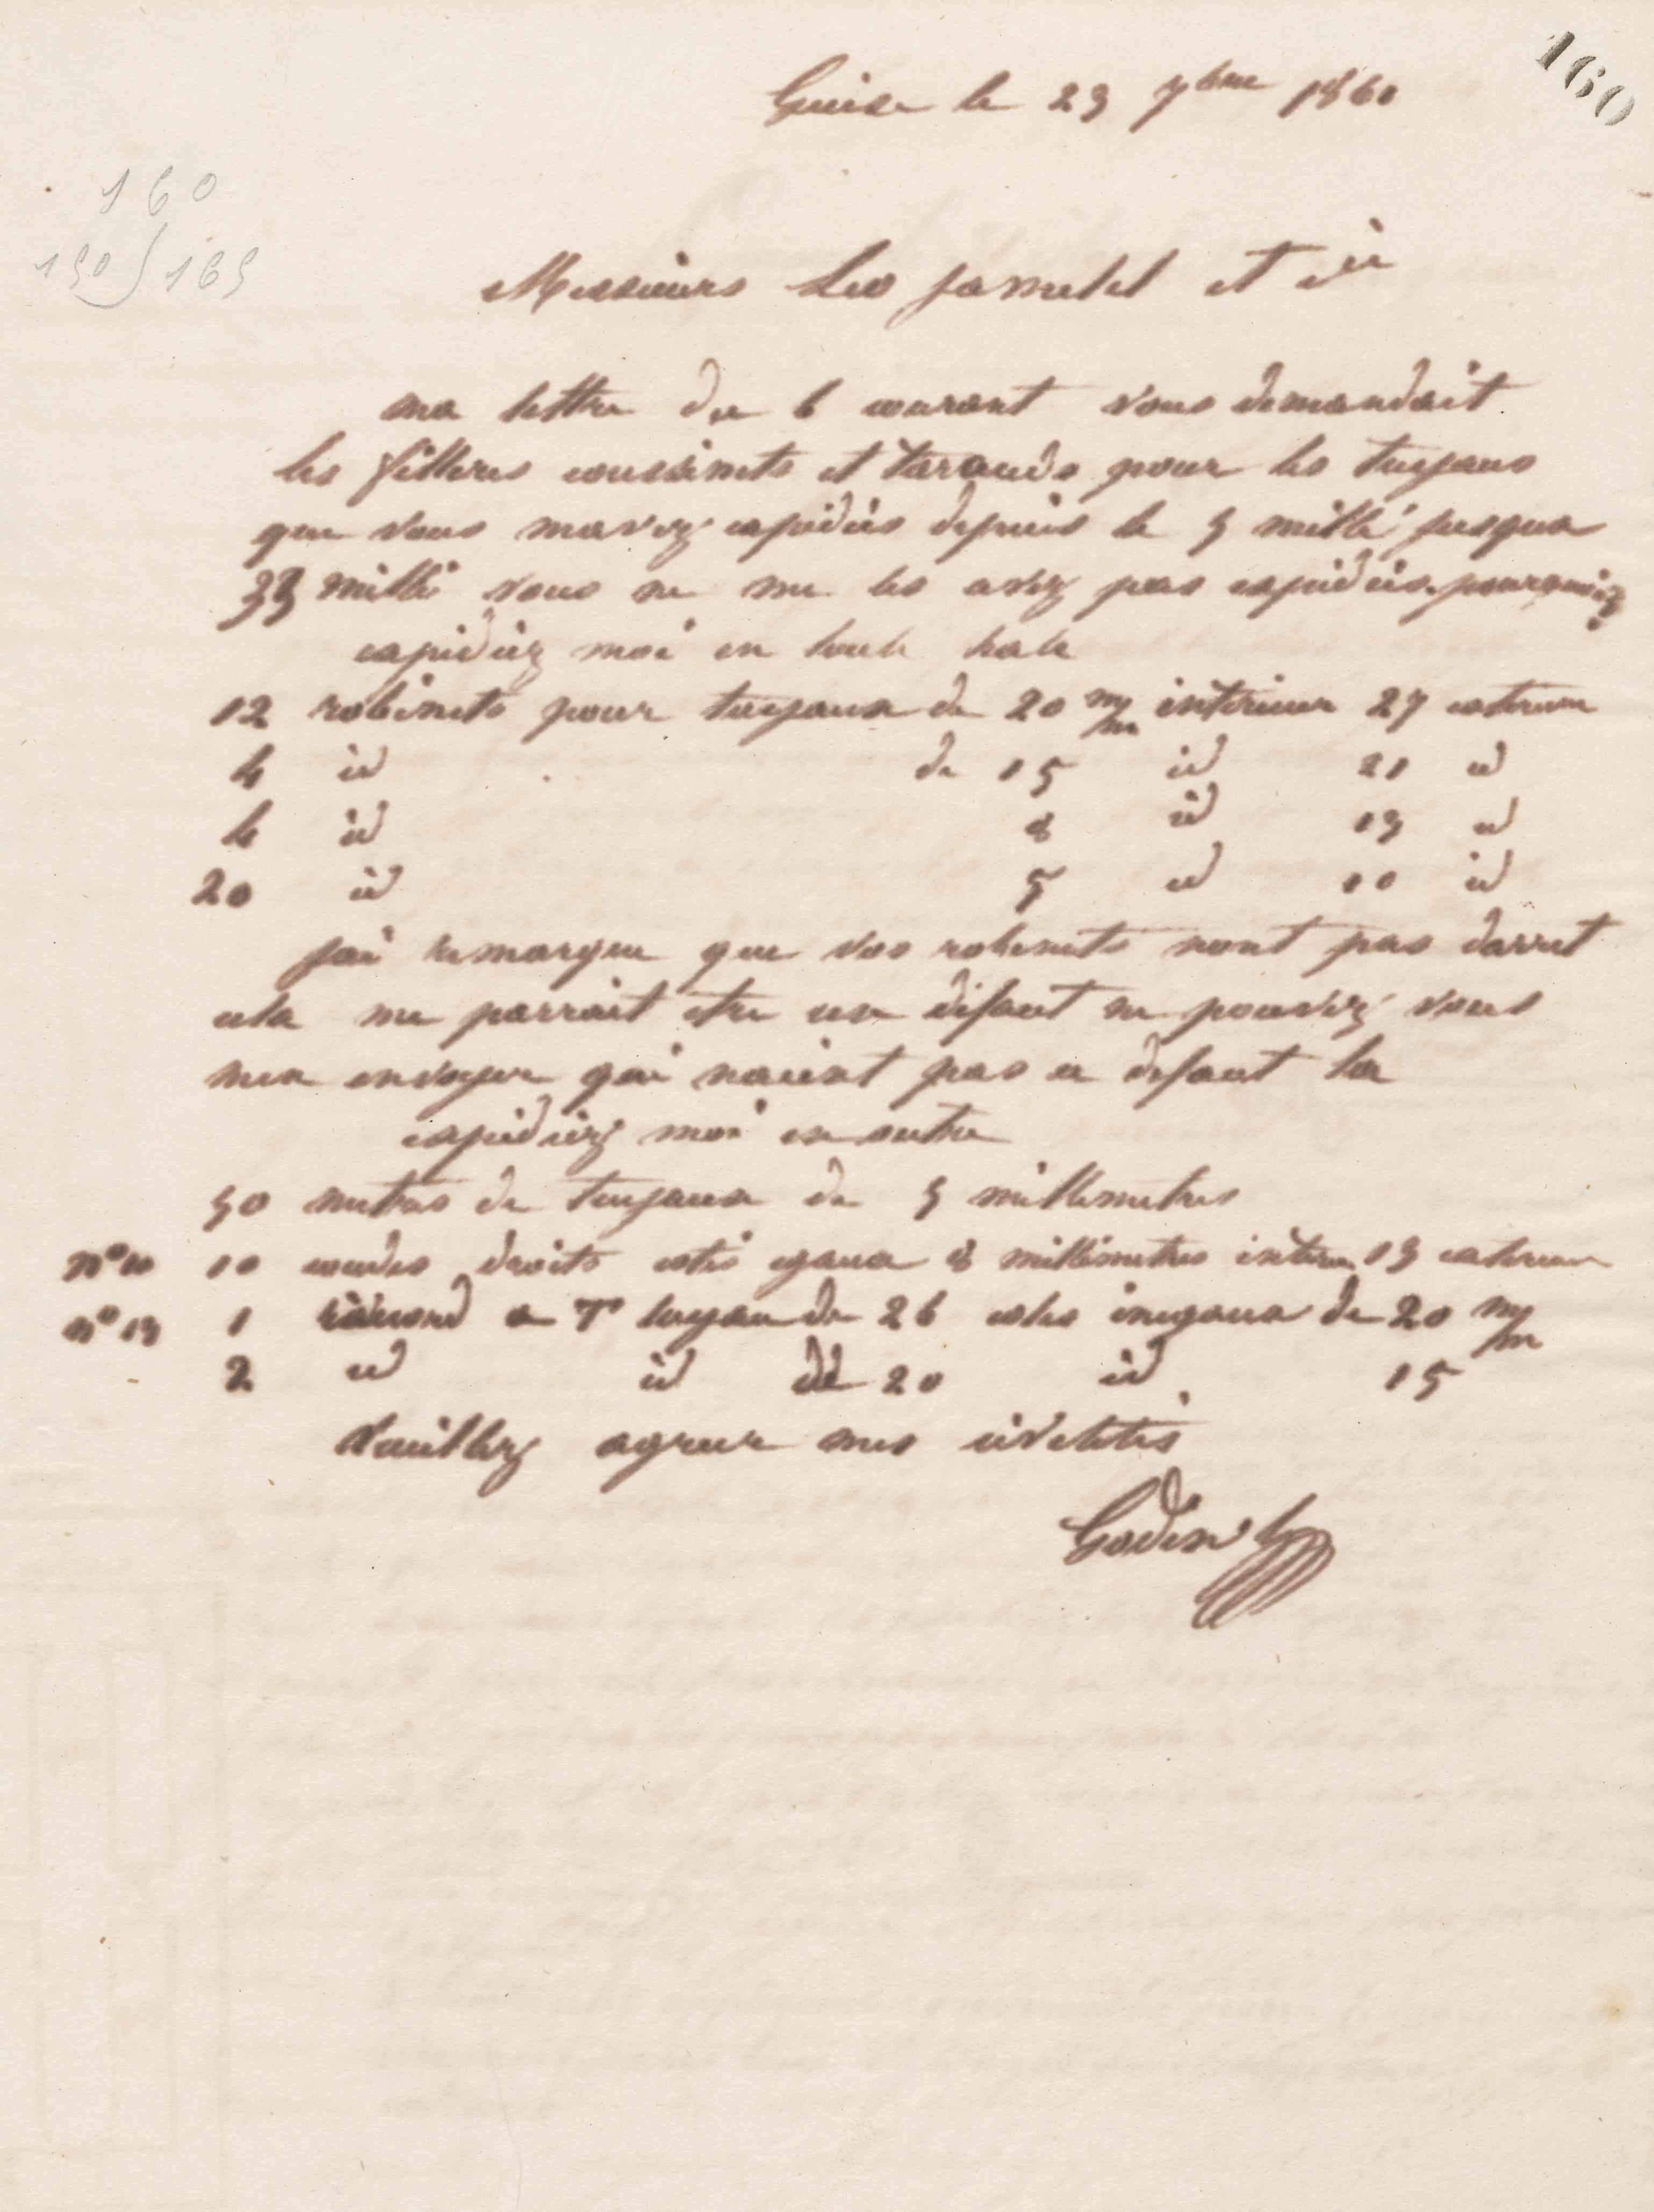 160
Guise le 23 7bre 1860
160
150 165
Messieurs Leo Jametel et cie
ma lettre du 6 courant vous demandait
les filleres coussinets et tarauds pour les tuyaus
que vous mavez expidiés depuis le 5 milli jusqua
33 milli vous ne me les avez pas expidiés. pourquoi?
expidiez moi en toute hate
12 robinets pour tuyaux de 20 m/m interieur 27 exterieur
4 id de 15 id 21 id
4 id 8 id 13 id
20 id 5 id 10 id
jai remarque que vos robinets nont pas darret
cela me parrait etre un difaut ne pouvez vous
men envoyer qui naient pas ce defaut la
expidiez moi en outre
50 metres de tuyaux de 5 millimetres
n° 10 10 coudes droits cotés egaux 8 millimetres interieur 13 exterieur
n° 13 1 raccord a T tuyau de 26 cotes inegaux de 20 m/m
2 id id de 20 id 15
Veuillez agreer mes civilités
Godin